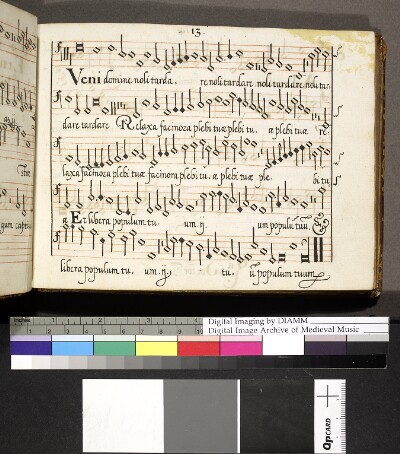 13.
Veni domine noli tarda. re noli tardare noli tardare noli tar
dare tardare Relaxa facinora plebi tuæ plebi tu. æ plebi tuæ re
laxa facinora plebi tuæ facinora plebi tu. æ plebi tuæ ple. bi tu
æ Et libera populum tu. um ij. um populū tuū.
libera populum tu. um ij. tu. ū populum tuum
stræ
gum captiu
inches 1 2 3 4
Digital Imaging by DIAMM
Digital Image Archive of Medieval Music
QPCARD